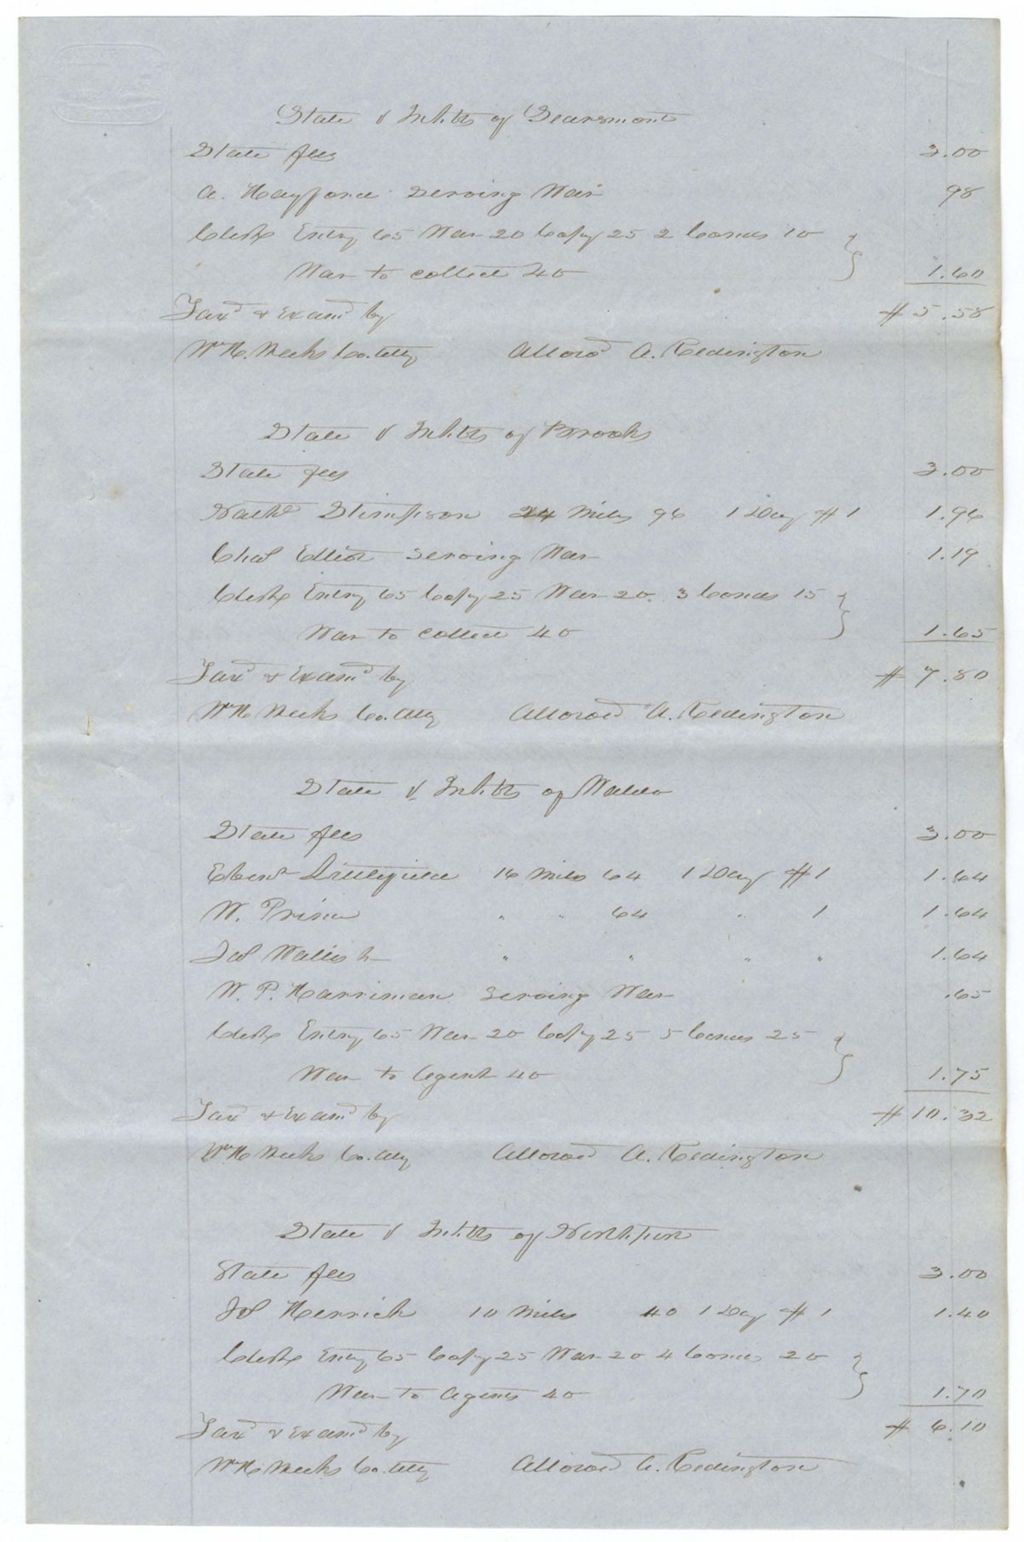 State v Inhbts of Searsmont
State fees 3.00
A. Hayford serving War 98
Clerks Entry 65 War 20 Copy 25 2 10
War to collect 40 1.60
Tax'd & Exam'd by # 5.58
Wm H. Weeks Co. Atty Allowed A. Redington
State v Inhbts of Brooks
State fees 3.00
Nathl Stimpson 24 Miles 96 1 Day #1 1.96
Chas Elliot serving War 1.19
Clerks Entry 65 Copy 25 War 20. 3 15
War to collect 40 1.65
Tax'd & Exam'd by # 7.80
Wm H Weeks Co. Atty Allowed A. Redington
State v. Inhbts of Waldo
State fees 3.00
Ebenr Littlefield 16 Miles 64 1 Day #1 1.64
W. Prince " " 64 " 1 1.64
Jas " " " " 1.64
W. P. Harriman serving War .65
Clerks Entry 65 War 20 Copy 25 5 25
War to Agent 40 1.75
Tax'd & Exam'd by # 10.32
Wm H Weeks Co. Atty Allowed A. Redington
State v Inhbts of Northport
State fees 3.00
Herrick 10 Miles 40 1 Day #1 1.40
Clerks Entry 65 Copy 25 War 20 4 20
War to Agents 40 1.70
Tax'd & Exam'd by # 6.10
Wm H Weeks Co. Atty Allowed A. Redington